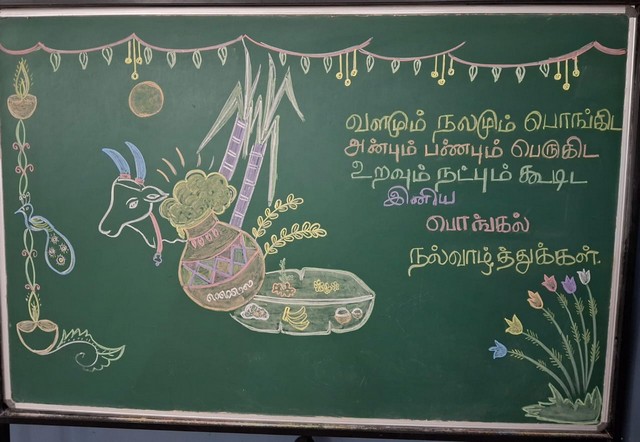 வளமும் நலமும் பொங்கிட
அன்பும் பண்பும் பெருகிட
உறவும் நட்பும் கூடிட
இனிய
பொங்கல்
நல்வாழ்த்துக்கள்.